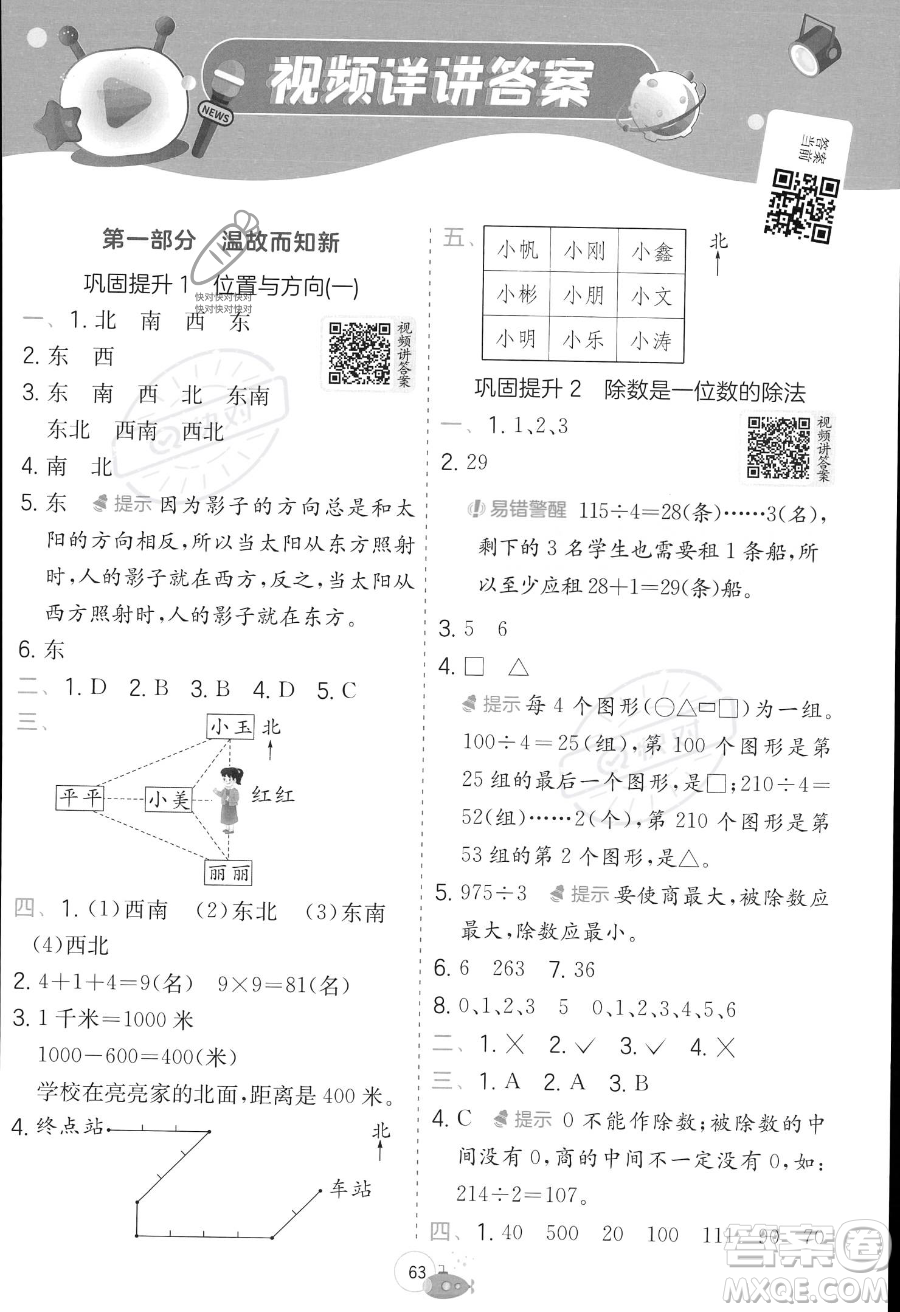 视频详讲答案
NEWS
答案
当前
第一部分 温故而知新
巩固提升1 位置与方向(一)
快对快对快对
快对快对快对
视频讲答案
一、1. 北 南 西 东
2. 东 西
3. 东 南 西 北 东南
东北 西南 西北
4. 南 北
5. 东 提示 因为影子的方向总是和太
阳的方向相反,所以当太阳从东方照射
时,人的影子就在西方,反之,当太阳从
西方照射时,人的影子就在东方。
6. 东
二、1. D 2. B 3. B 4. D 5. C
三、
小玉 北
平平 小美 红红
丽丽
四、1. (1)西南 (2)东北 (3)东南
(4)西北
2. 4+1+4=9(名) 9×9=81(名)
3. 1千米=1000米
1000-600=400(米)
学校在亮亮家的北面,距离是400米。
4. 终点站 北
车站
五、
小帆 小刚 小鑫 北
小彬 小朋 小文
小明 小乐 小涛
巩固提升2 除数是一位数的除法
视频讲答案
一、1. 1,2,3
2. 29
易错警醒 115÷4=28(条)……3(名),
剩下的3名学生也需要租1条船,所
以至少应租28+1=29(条)船。
3. 5 6
4. □ △
提示 每4个图形(○△▭□)为一组。
100÷4=25(组),第100个图形是第
25组的最后一个图形,是□;210÷4=
52(组)……2(个),第210个图形是第
53组的第2个图形,是△。
5. 975÷3 提示 要使商最大,被除数应
最大,除数应最小。
6. 6 263 7. 36
8. 0,1,2,3 5 0,1,2,3,4,5,6
二、1. ✕ 2. ✓ 3. ✓ 4. ✕
三、1. A 2. A 3. B
4. C 提示 0不能作除数;被除数的中
间没有0,商的中间不一定没有0,如:
214÷2=107。
四、1. 40 500 20 100 111 90 70
63
答案圈
MXQE.COM